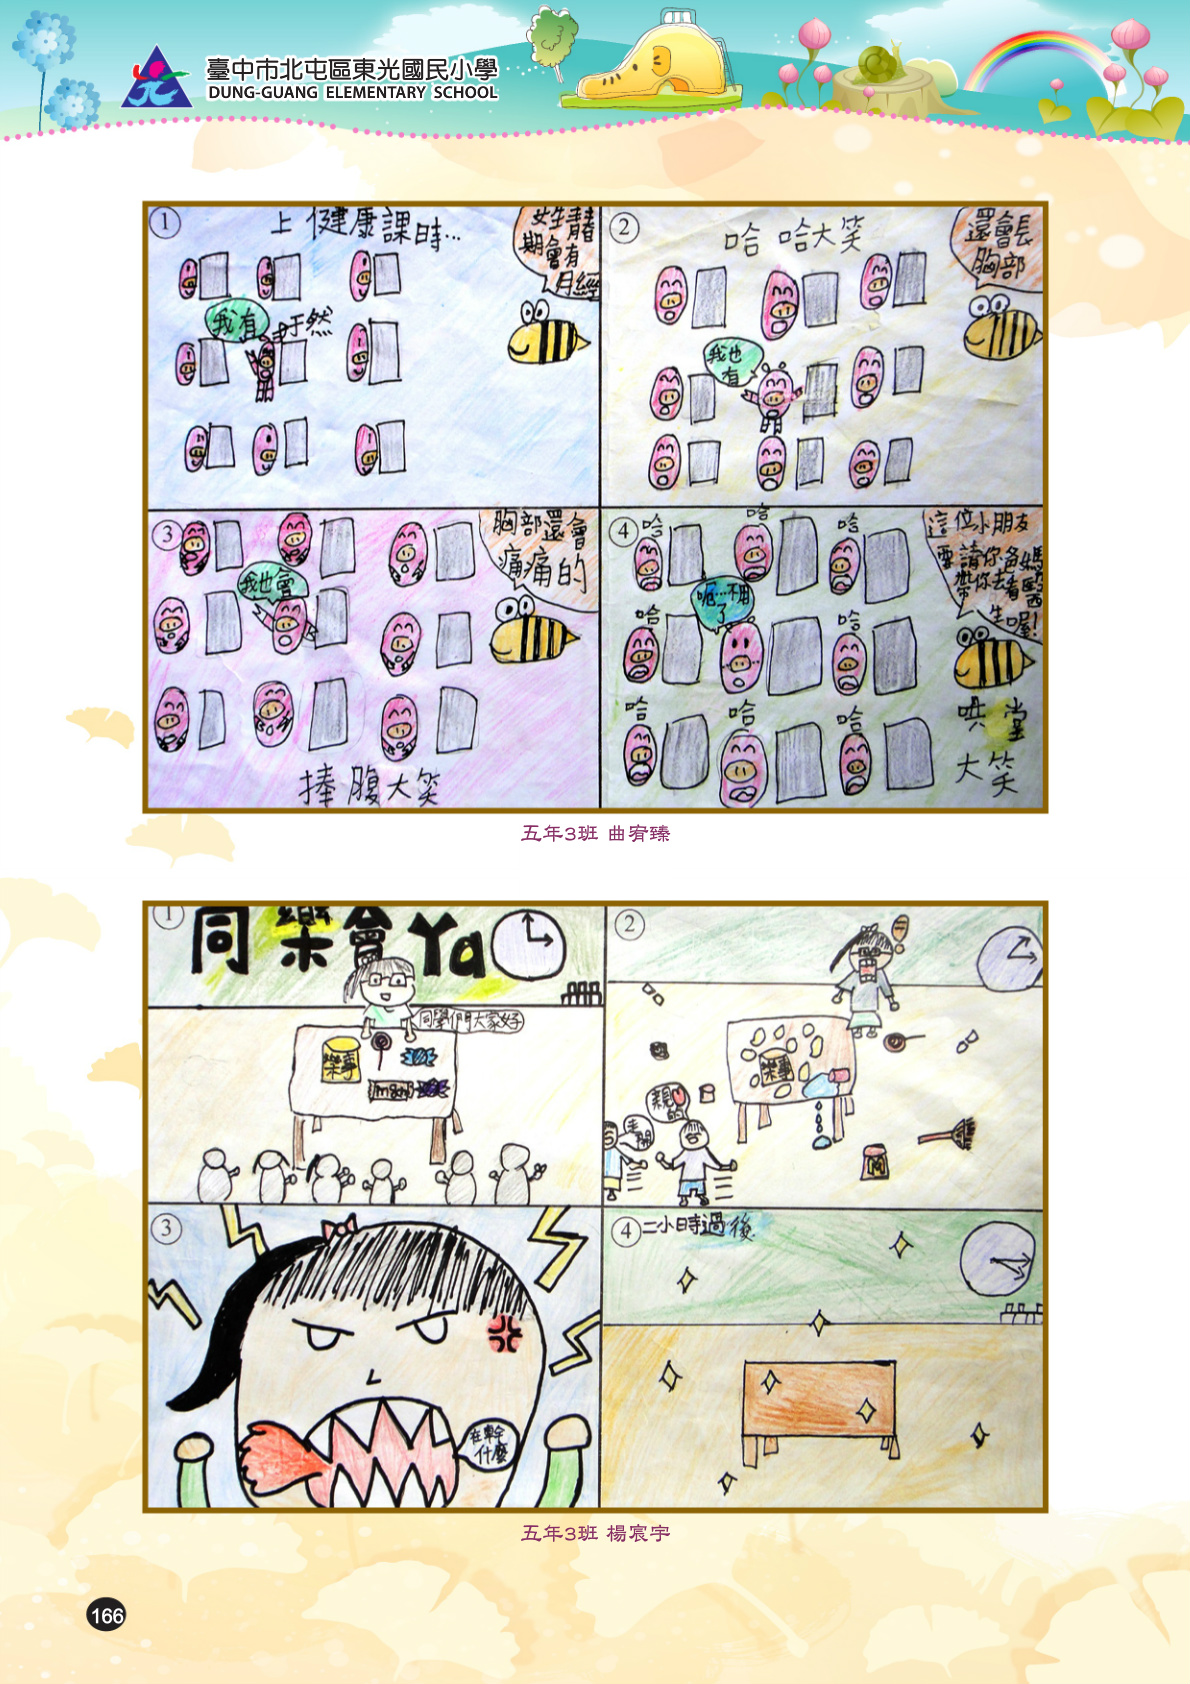 臺中市北屯區東光國民小學
DUNG-GUANG ELEMENTARY SCHOOL
1
上健康課時…
女生青春
期會有
月經
我有
2
哈哈大笑
還會長
胸部
我也
有
3
胸部還會
痛痛的
我也會
捧腹大笑
4
哈
哈
哈
這位小朋友
要請你爸媽
帶你去看醫
生喔!
呃…不用
了
哈
哈
哈
哈
哈
哄堂
大笑
五年3班 曲宥臻
1
同樂會Ya
同學們大家好
樂事
2
樂事
親愛的
走開
M
3
在幹
什麼
4
二小時過後
五年3班 楊宸宇
166